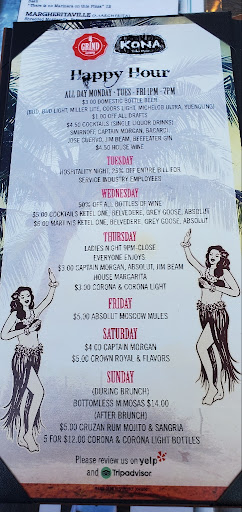 "There is no Manners on this Planet" $8
MARGARITAVILLE
GRIND
KONA
Happy Hour
ALL DAY MONDAY - TUES - FRI 1PM - 7PM
$3.00 DOMESTIC BOTTLE BEER
(BUD, BUD LIGHT MILLER LITE, COORS LIGHT, MICHELOB ULTRA, YUENGLING)
$1.00 OFF ALL DRAFTS
$4.50 COCKTAILS (SINGLE LIQUOR DRINKS)
SMIRNOFF, CAPTAIN MORGAN, BACARDI
JOSE CUERVO, JIM BEAM, BEEFEATER GIN
$4.50 HOUSE WINE
TUESDAY
HOSPITALITY NIGHT, 25% OFF ENTIRE BILL FOR
SERVICE INDUSTRY EMPLOYEES
WEDNESDAY
50% OFF ALL BOTTLES OF WINE
$5.00 COCKTAILS KETEL ONE, BELVEDERE, GREY GOOSE, ABSOLUT
$6.00 MARTINIS KETEL ONE, BELVEDERE, GREY GOOSE, ABSOLUT
THURSDAY
LADIES NIGHT 9PM-CLOSE
EVERYONE ENJOYS
$3.00 CAPTAIN MORGAN, ABSOLUT, JIM BEAM
HOUSE MARGARITA
$3.00 CORONA & CORONA LIGHT
FRIDAY
$5.00 ABSOLUT MOSCOW MULES
SATURDAY
$4.00 CAPTAIN MORGAN
$5.00 CROWN ROYAL & FLAVORS
SUNDAY
(DURING BRUNCH)
BOTTOMLESS MIMOSAS $14.00
(AFTER BRUNCH)
$5.00 CRUZAN RUM MOJITO & SANGRIA
5 FOR $12.00 CORONA & CORONA LIGHT BOTTLES
Please review us on yelp
and Tripadvisor